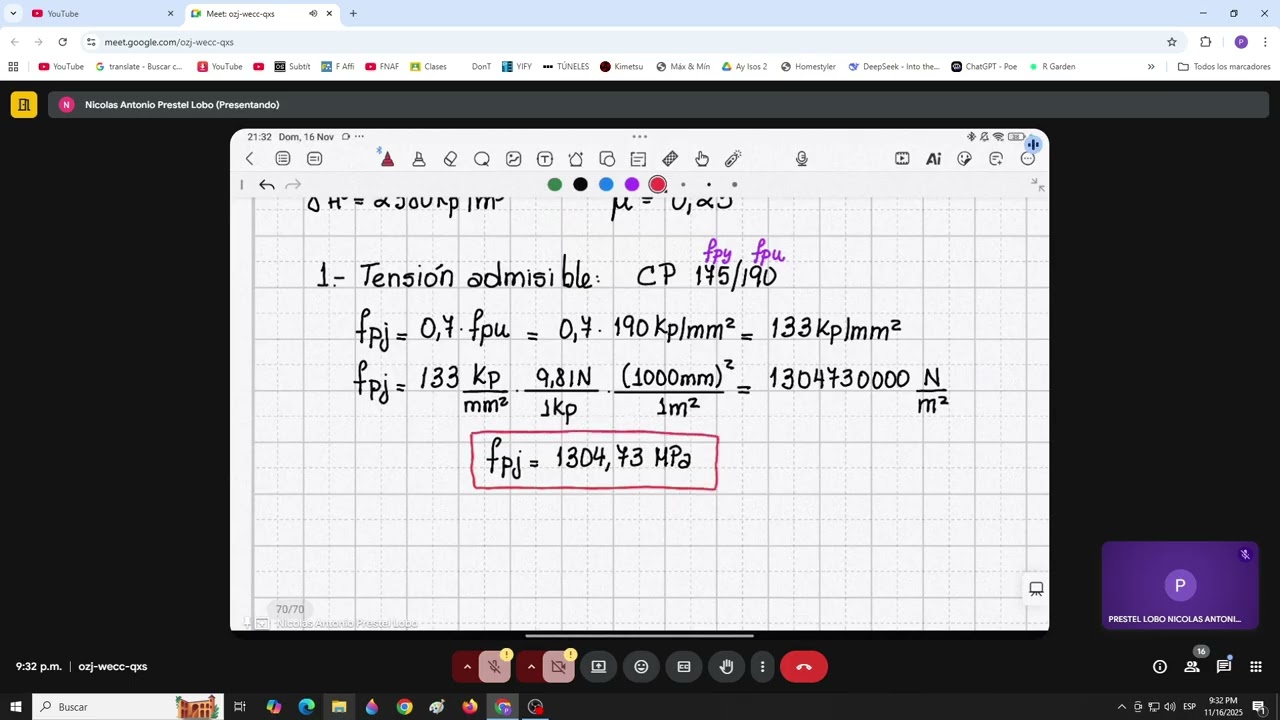 YouTube
Meet: ozj-wecc-qxs
meet.google.com/ozj-wecc-qxs
YouTube
translate - Buscar c...
YouTube
Subtit
F Affi
FNAF
Clases
DonT
YIFY
TÚNELES
Kimetsu
Máx & Mín
Ay Isos 2
Homestyler
DeepSeek - Into the...
ChatGPT - Poe
R Garden
Todos los marcadores
N
Nicolas Antonio Prestel Lobo (Presentando)
21:32 Dom, 16 Nov
Ai
μ = 0,25
fpy fpu
1.- Tensión admisible: CP 175/190
fpj = 0,7 · fpu = 0,7 · 190 Kp/mm² = 133 Kp/mm²
fpj = 133 Kp/mm² · 9,81N/1Kp · (1000mm)²/1m² = 1304730000 N/m²
fpj = 1304,73 MPa
70/70
Nicolas Antonio Prestel Lobo
P
PRESTEL LOBO NICOLAS ANTONI...
9:32 p.m. | ozj-wecc-qxs
16
Buscar
ESP
9:32 PM
11/16/2025